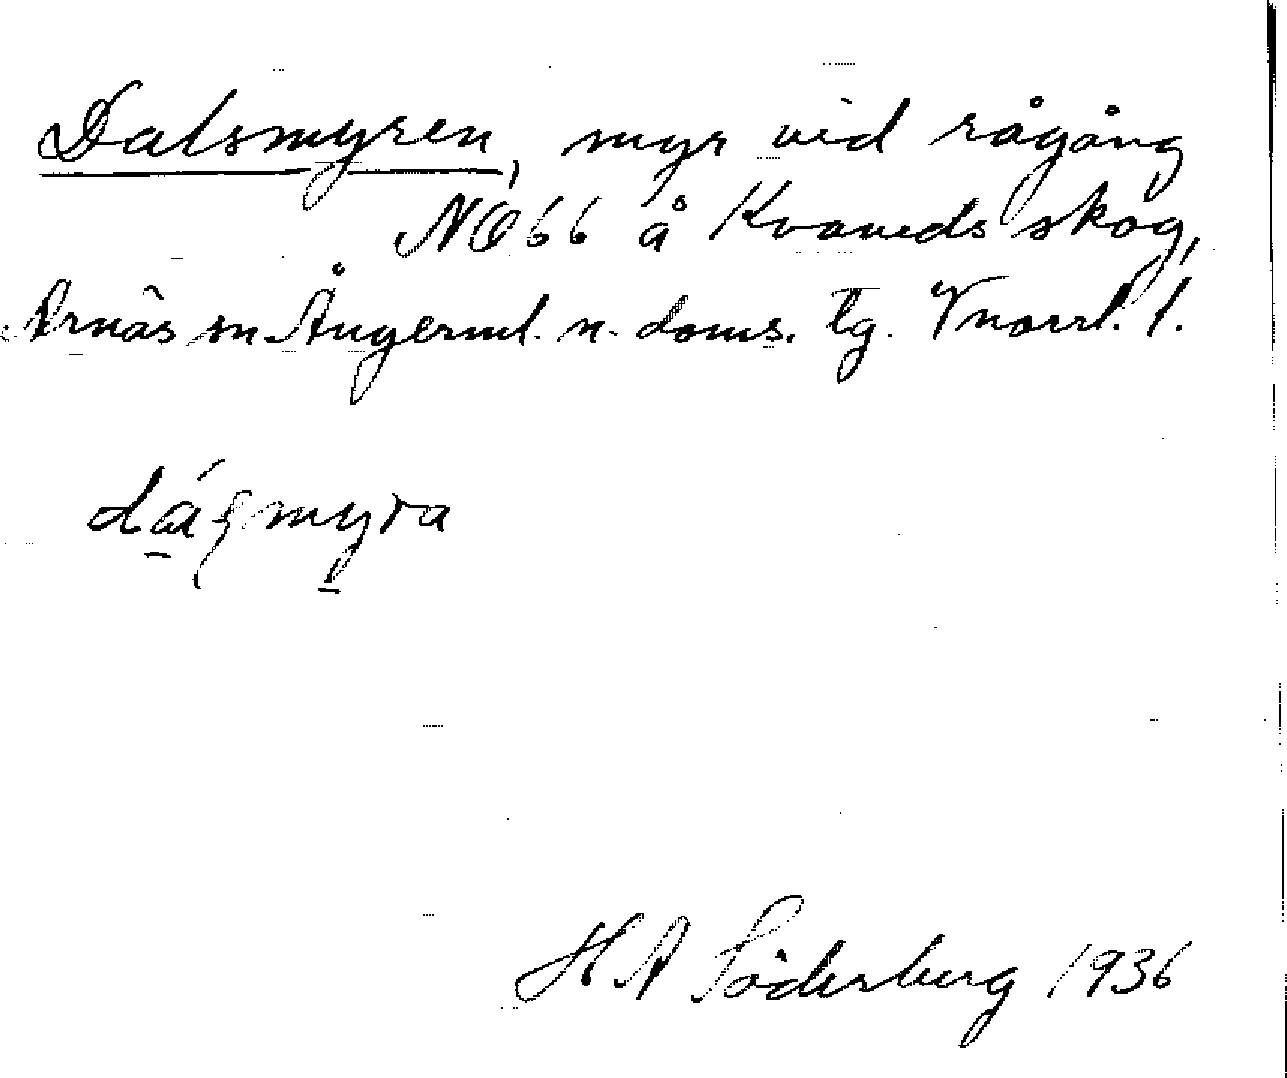 Dalsmyren, myr vid rågång
NÖ 66 å Kvaveds skog,
Arnäs sn. Ångerml. n. doms. tg. Vnorrl. l.
myra
H A Söderberg 1936